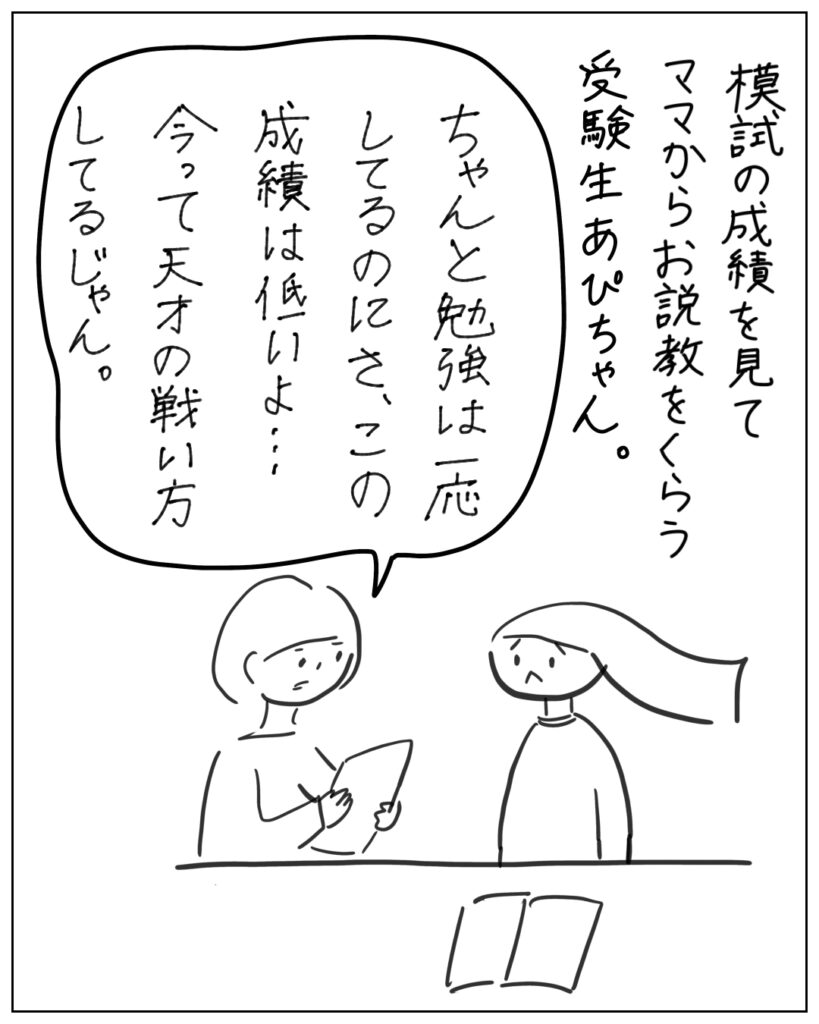 模試の成績を見て
ママからお説教をくらう
受験生あぴちゃん。
ちゃんと勉強は一応
してるのにさ、この
成績は低いよ…
今って天才の戦い方
してるじゃん。